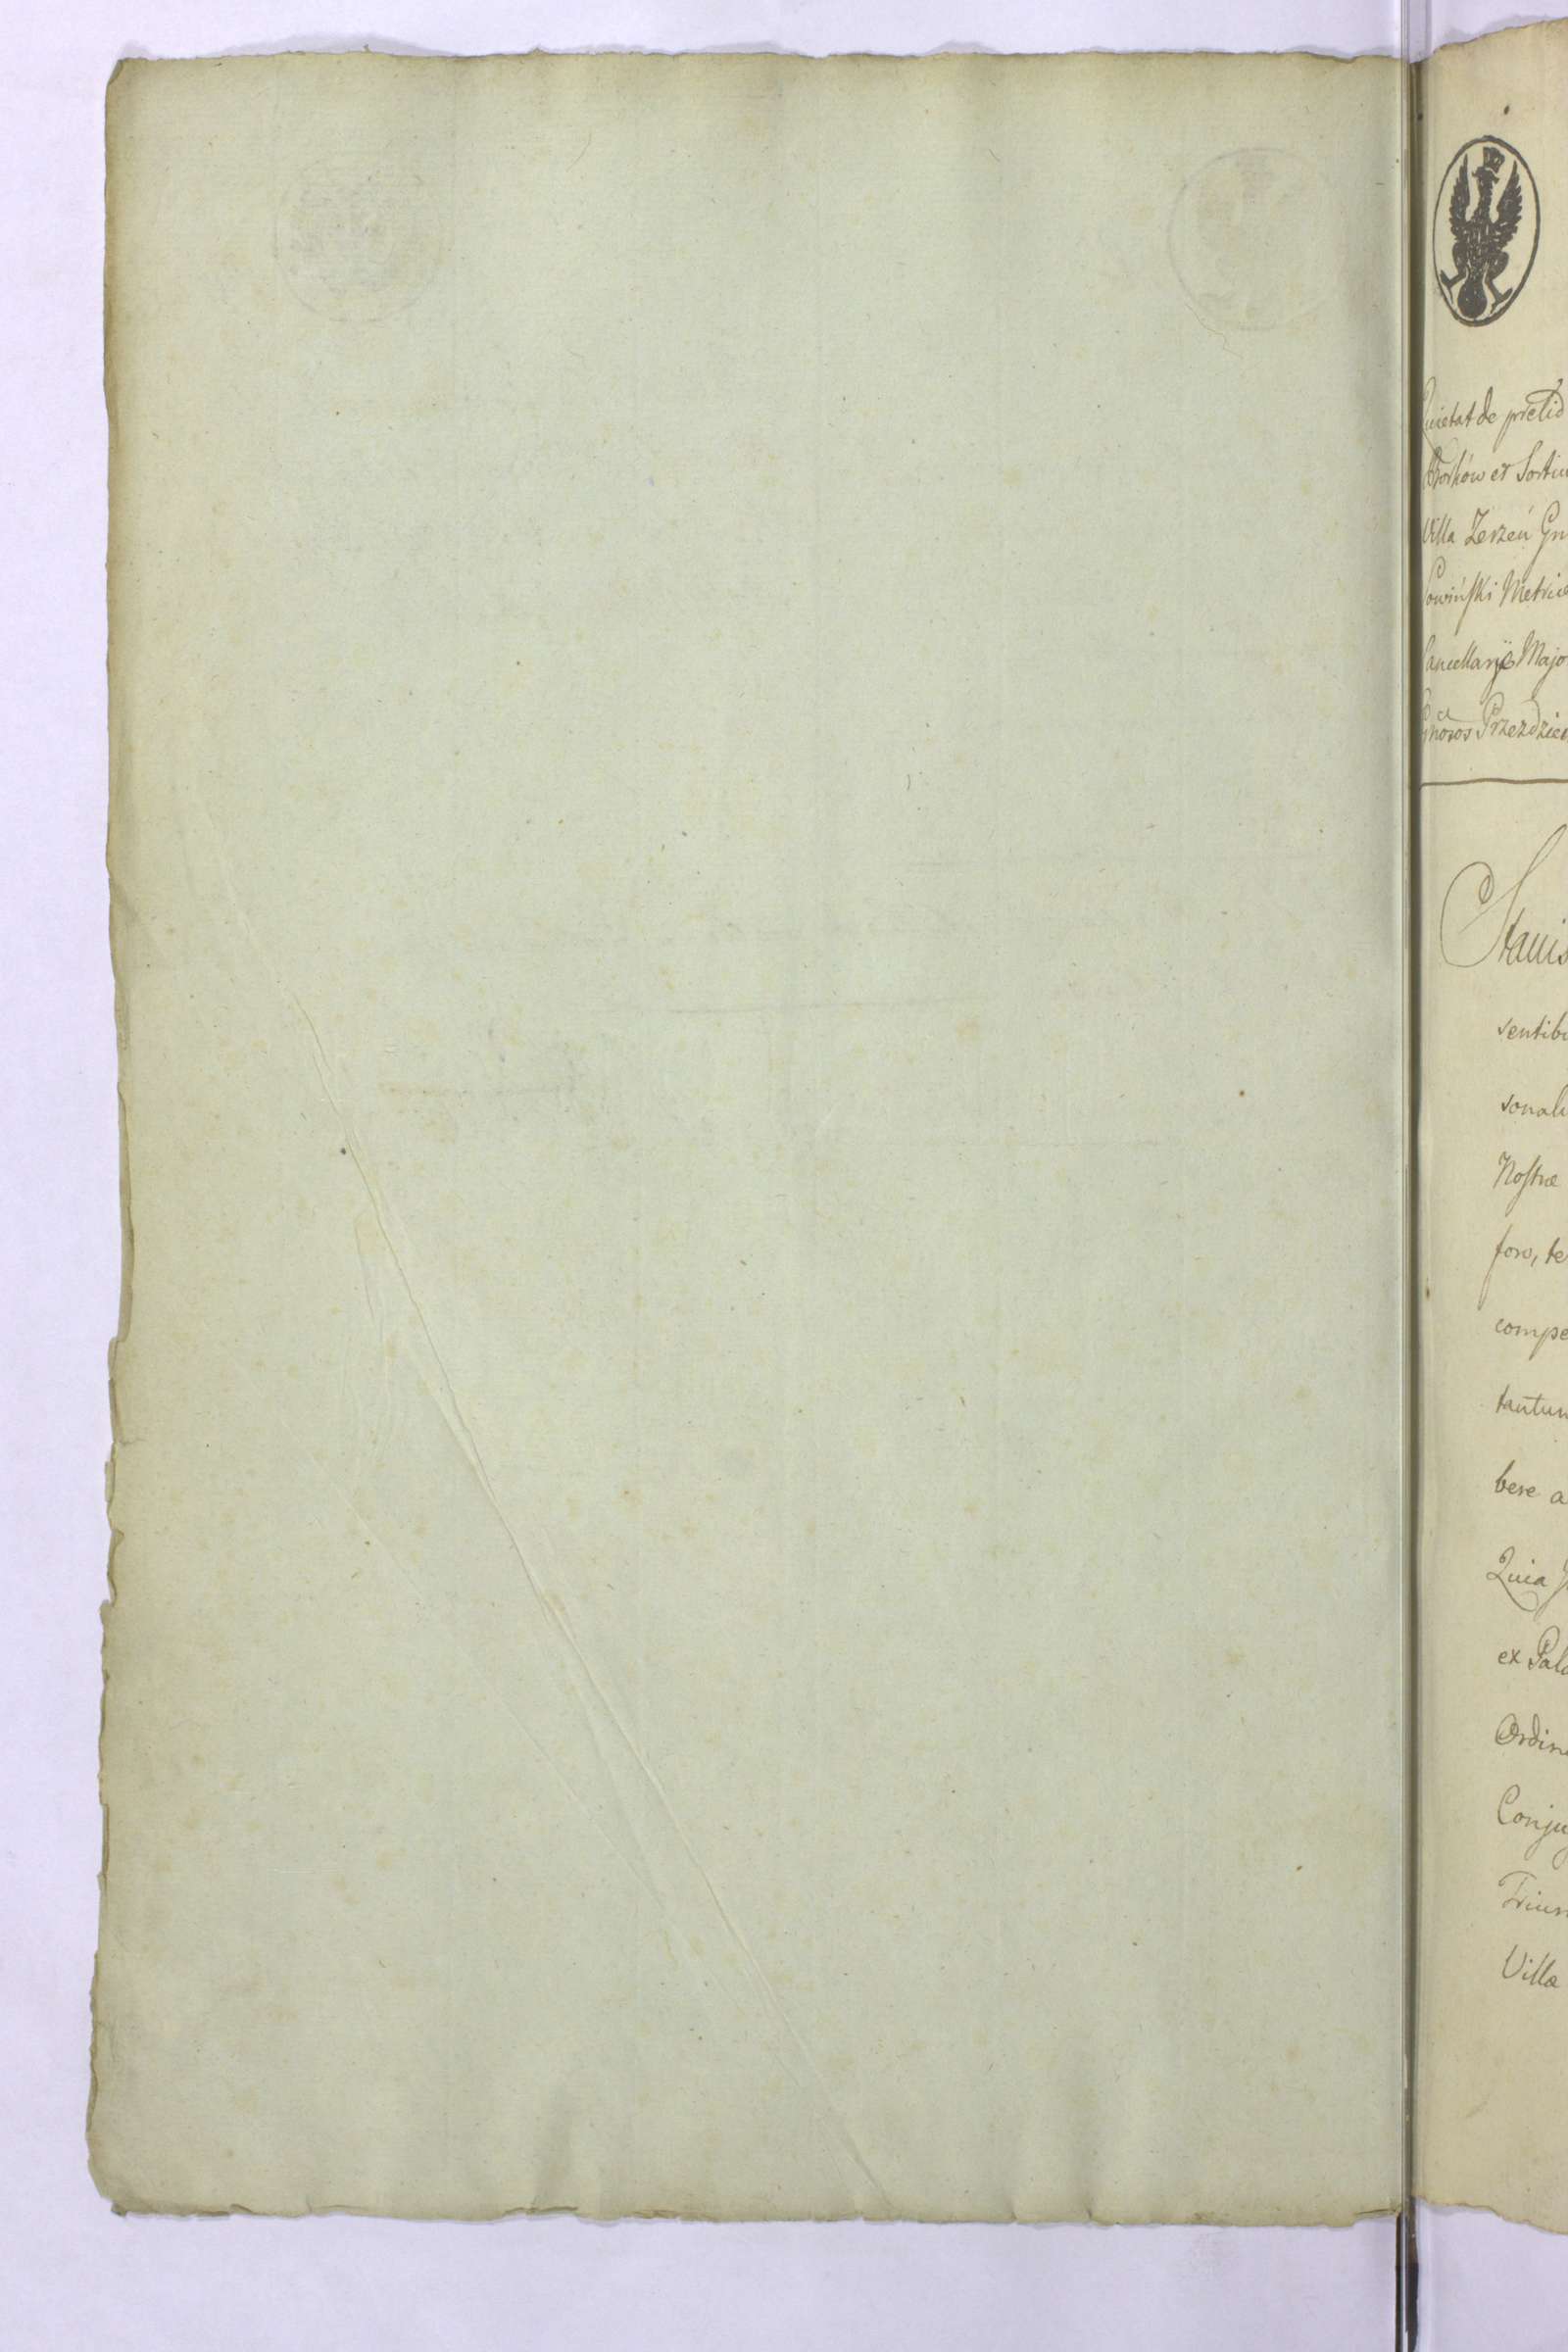 Quietat de pretio
et Sortiu
Villa Zerzeń Gn
Sowińſki Metrice
Cancellaryæ Majo
Przezdziec
Stanis
sentibu
sonali
Noſtræ
foro, te
compe
tantum
bere a
Quia
ex Pala
Ordin
Conjug
Trium
Villa